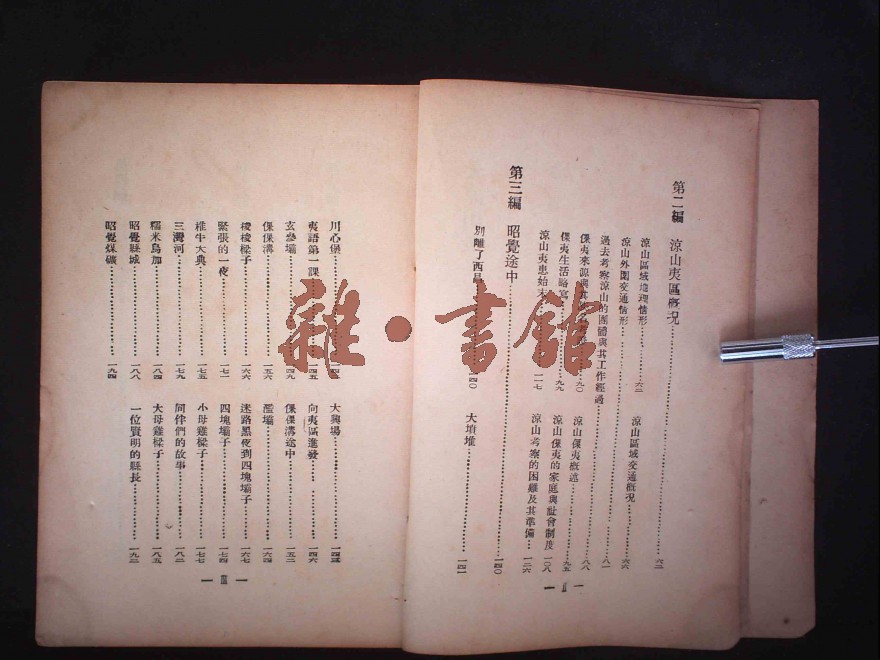 第二編 涼山夷區概况……六二
涼山區域地理情形……六二
涼山區域交通概况……六六
涼山外圍交通情形……
過去考察涼山的團體與其工作經過……八一
倮夷來源與其……九〇
涼山倮夷概述……九五
倮夷生活略寫……九九
涼山倮夷的家庭與社會制度 一〇八
涼山夷患始末……一一七
涼山考察的困難及其準備…一二六
第三編 昭覺途中……一四〇
別離了西昌……
大墳堆……一四一
— II —
川心堡……
大興場……一四三
夷語第一課……一四五
向夷區進發……一四六
玄參壩……一四九
倮倮溝途中……一五二
倮倮溝……一五六
濫壩……一六四
稜稜樑子……一六六
迷路黑夜到四塊壩子……一六七
緊張的一夜……一七一
四塊壩子……一七四
椎牛大典……一七五
小母雞樑子……一七七
三灣河……一七九
同伴們的故事……一八二
糯米烏加……一八四
大母雞樑子……一八五
昭覺縣城……一八八
一位賢明的縣長……一九二
昭覺煤礦……一九四
— III —
雜·書館